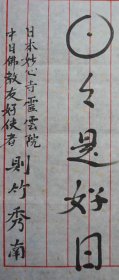 日々是好日
日本妙心寺靈雲院
中日佛教友好使者
則竹秀南